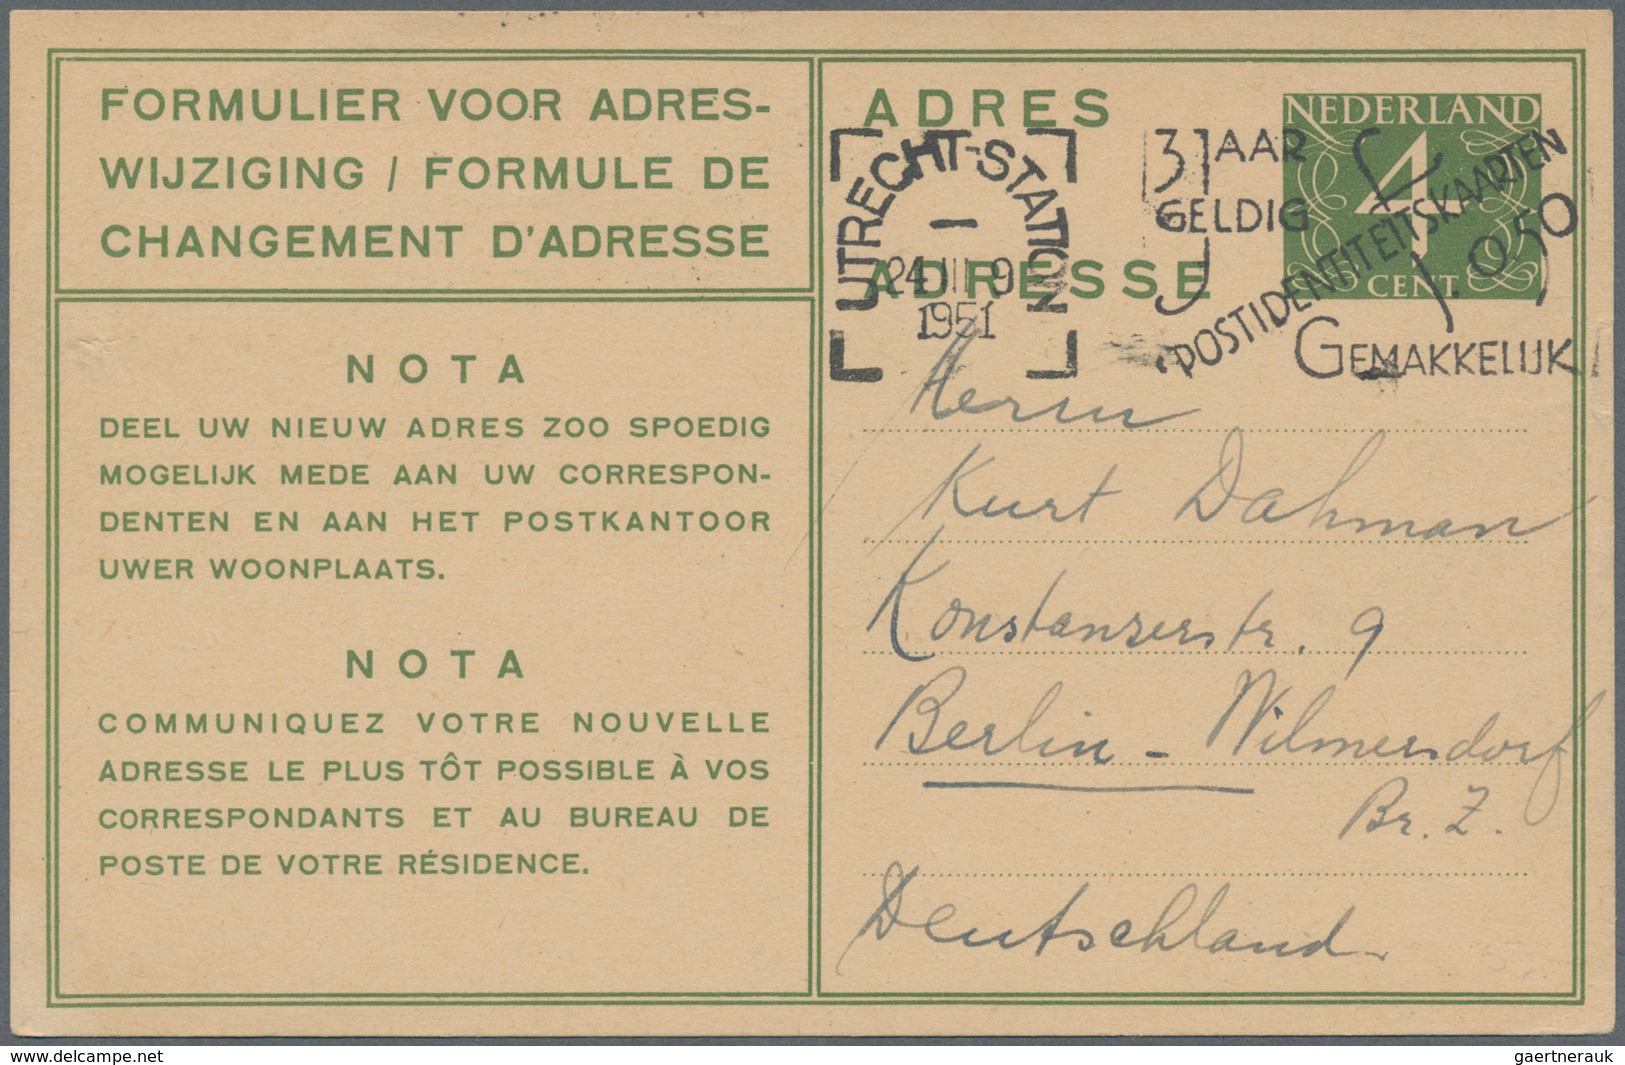 FORMULIER VOOR ADRES-
WIJZIGING / FORMULE DE
CHANGEMENT D'ADRESSE
NOTA
DEEL UW NIEUW ADRES ZOO SPOEDIG
MOGELIJK MEDE AAN UW CORRESPON-
DENTEN EN AAN HET POSTKANTOOR
UWER WOONPLAATS.
NOTA
COMMUNIQUEZ VOTRE NOUVELLE
ADRESSE LE PLUS TÔT POSSIBLE À VOS
CORRESPONDANTS ET AU BUREAU DE
POSTE DE VOTRE RÉSIDENCE.
ADRES
ADRESSE
UTRECHT-STATION
24 III 9
1951
3 JAAR
GELDIG
POSTIDENTITEITSKAARTEN
f. 0.50
GEMAKKELIJK
NEDERLAND
4
CENT
Herrn
Kurt Dahman
Konstanzerstr. 9
Berlin - Wilmersdorf
Br. Z.
Deutschland
delcampe.net
gaertnerauk